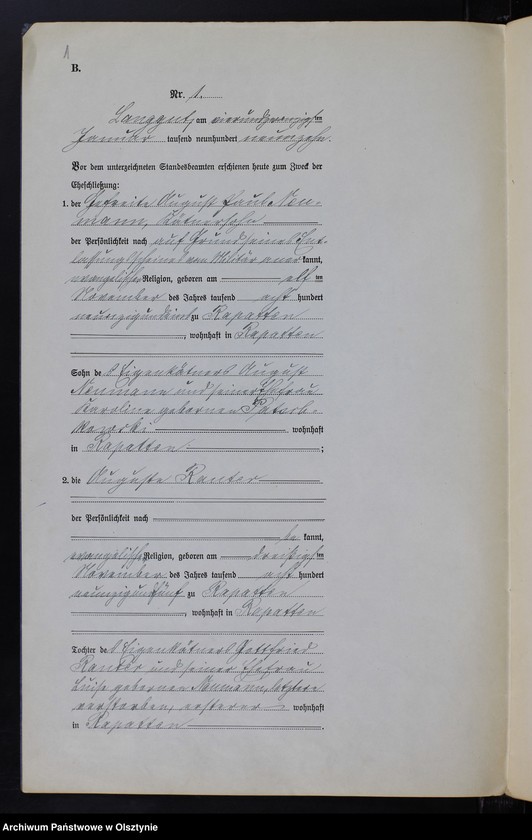 1
B.
Nr. 1.
Langgut, am vierundzwanzigsten
Januar tausend neunhundert neunzehn.
Vor dem unterzeichneten Standesbeamten erschienen heute zum Zweck der
Eheschließung:
1. der Gefreite August Paul Neu-
mann, Kätnersohn
der Persönlichkeit nach auf Grund seines Ent-
lassungsscheines vom Militär anerkannt,
evangelischer Religion, geboren am elften
November des Jahres tausend acht hundert
neunzigundeins zu Rapatten
, wohnhaft in Rapatten
Sohn des Eigenkätners August
Neumann und seiner Ehefrau
Karoline geborenen
wohnhaft
in Rapatten ;
2. die Auguste Kantor
der Persönlichkeit nach
be kannt,
evangelischer Religion, geboren am dreißigsten
November des Jahres tausend acht hundert
neunzigundfünf zu Rapatten
, wohnhaft in Rapatten
Tochter des Eigenkätners Gottfried
Kantor und seiner Ehefrau
Luise geborenen Neumann, letztere
verstorben, ersterer wohnhaft
in Rapatten .
Archiwum Państwowe w Olsztynie